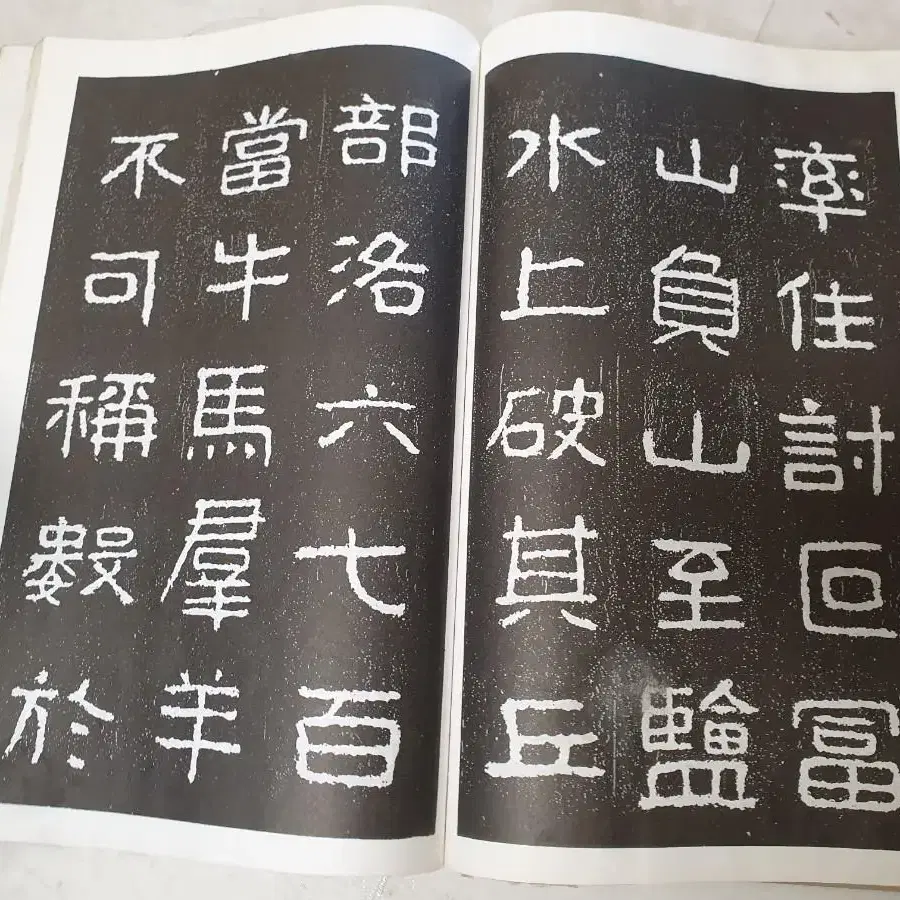 率住討回富
山負山至鹽
水上破其丘
部洛六七百
當牛馬羣羊
不可稱數於